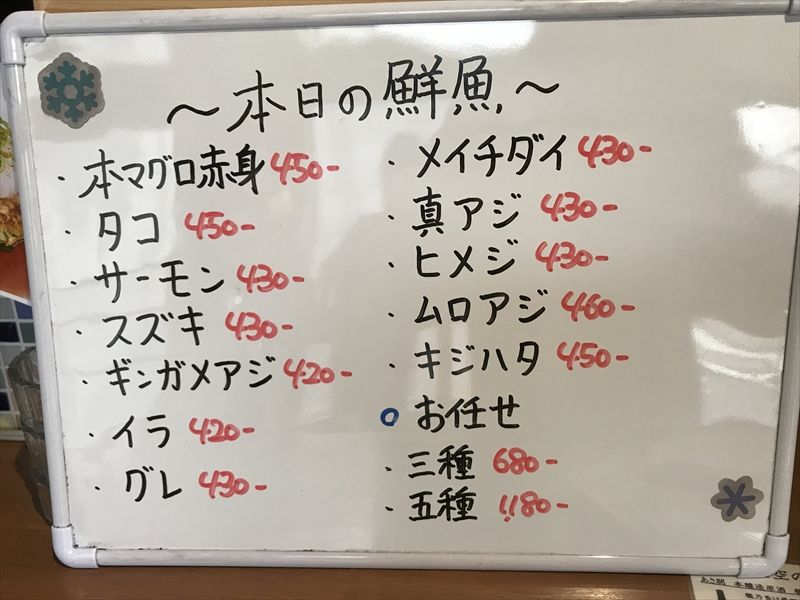 ～本日の鮮魚～
・本マグロ赤身 450-
・タコ 450-
・サーモン 430-
・スズキ 430-
・ギンガメアジ 420-
・イラ 420-
・グレ 430-
・メイチダイ 430-
・真アジ 430-
・ヒメジ 430-
・ムロアジ 460-
・キジハタ 450-
○お任せ
・三種 680-
・五種 1,180-
あさ開 本醸造原酒